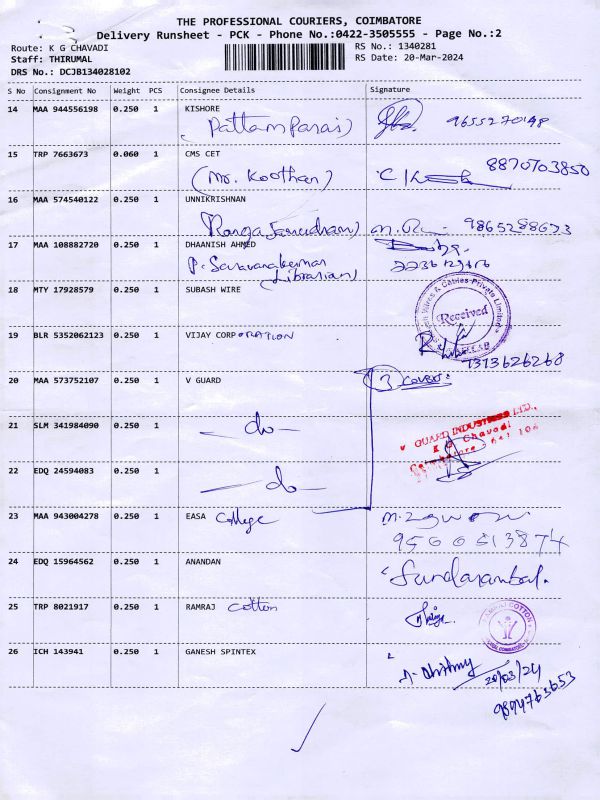 THE PROFESSIONAL COURIERS, COIMBATORE
Delivery Runsheet - PCK - Phone No.:0422-3505555 - Page No.:2
Route: K G CHAVADI
RS No.: 1340281
Staff: THIRUMAL
RS Date: 20-Mar-2024
DRS No.: DCJB134028102
S No Consignment No Weight PCS Consignee Details Signature
14 MAA 944556198 0.250 1 KISHORE
(Pattamparai)
15 TRP 7663673 0.060 1 CMS CET
(Mr. Koothan) 8870703850
16 MAA 574540122 0.250 1 UNNIKRISHNAN
17 MAA 108882720 0.250 1 DHAANISH AHMED
P. Saravanakumar
(Librarian)
18 MTY 17928579 0.250 1 SUBASH WIRE
Received
19 BLR 5352062123 0.250 1 VIJAY CORPORATION
7373626268
20 MAA 573752107 0.250 1 V GUARD 3 Cover
21 SLM 341984090 0.250 1 - do -
V GUARD INDUSTRIES LTD.,
K G Chavadi
Coimbatore - 641 105
22 EDQ 24594083 0.250 1 - do -
23 MAA 943004278 0.250 1 EASA College
24 EDQ 15964562 0.250 1 ANANDAN Sundarambal.
25 TRP 8021917 0.250 1 RAMRAJ Cotton
RAMRAJ COTTON
26 ICH 143941 0.250 1 GANESH SPINTEX
20/03/24
9894763653